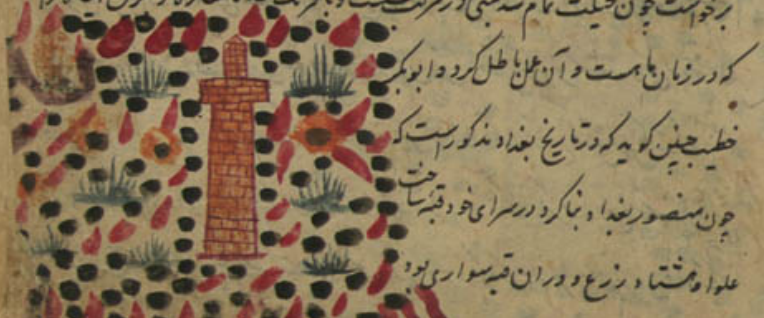 برخواست چون فضیلت تمام شد
که در زمان ما هست و آن عمل باطل کرد و ابوبکر
خطیب چنین کوید که در تاریخ بغداد مذکور است که
چون منصور بغداد بنا کرد در سرای خود قبه ساخت
علو او هشتاد زرع و دران قبه سواری بود